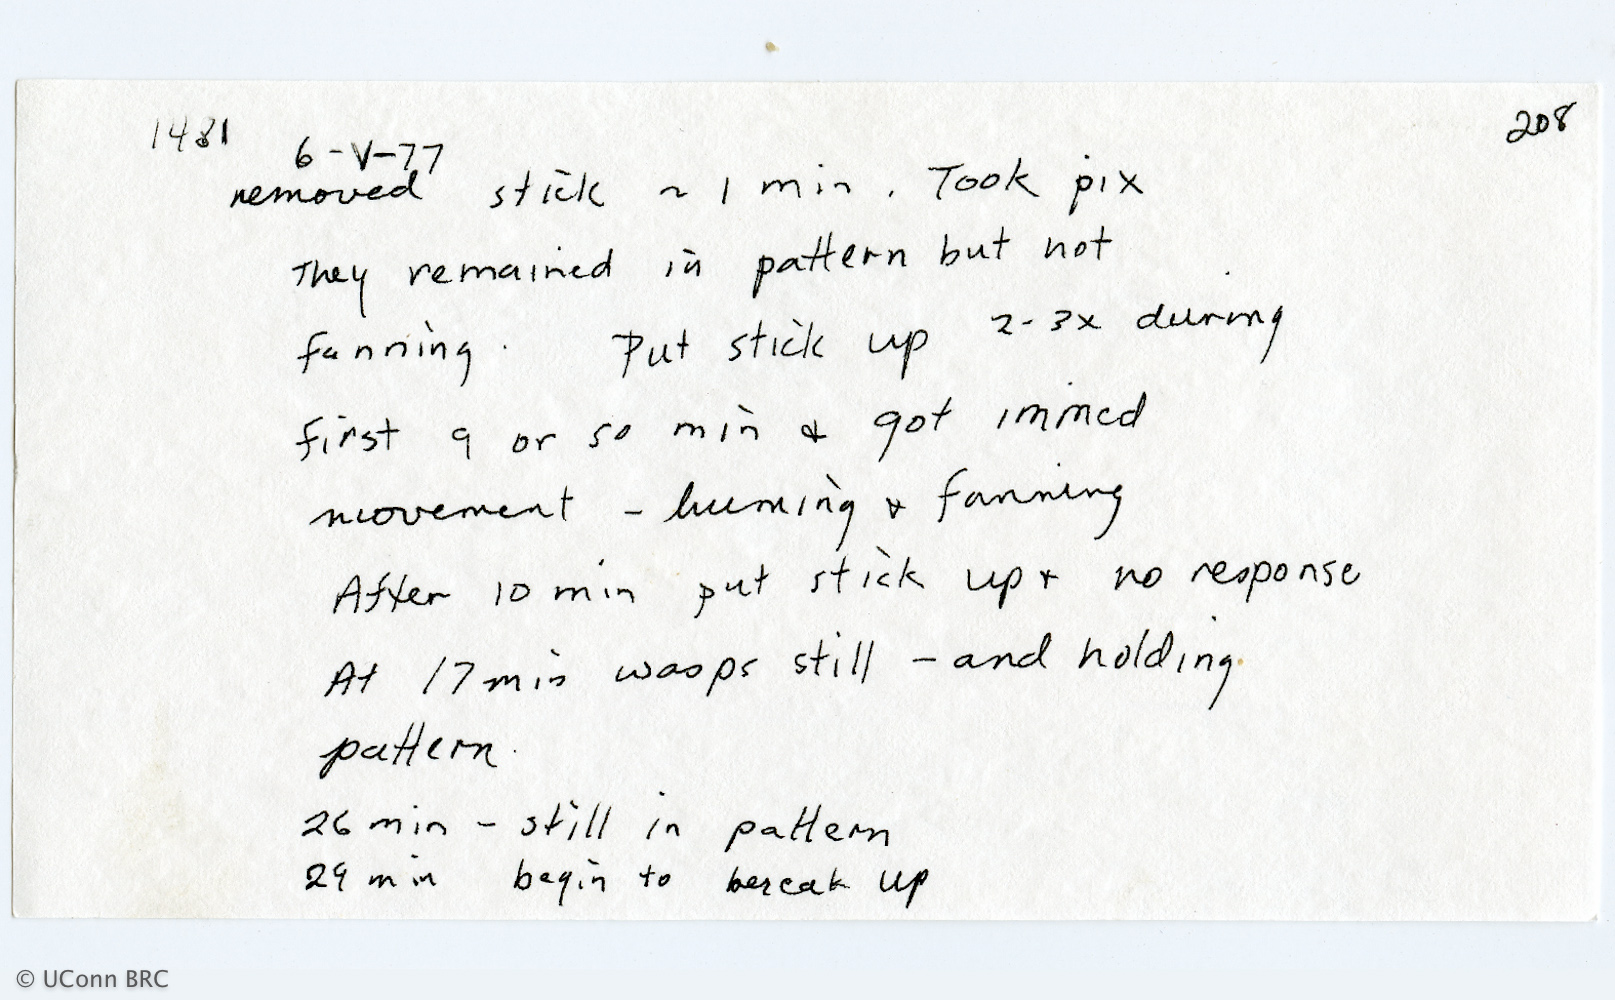 1481
208
6-V-77
removed stick ~ 1 min. Took pix
They remained in pattern but not
fanning. Put stick up 2-3x during
first 9 or so min & got immed
movement - huming & fanning
After 10 min put stick up & no response
At 17 min wasps still - and holding
pattern.
26 min - still in pattern
29 min begin to bereak up
© UConn BRC